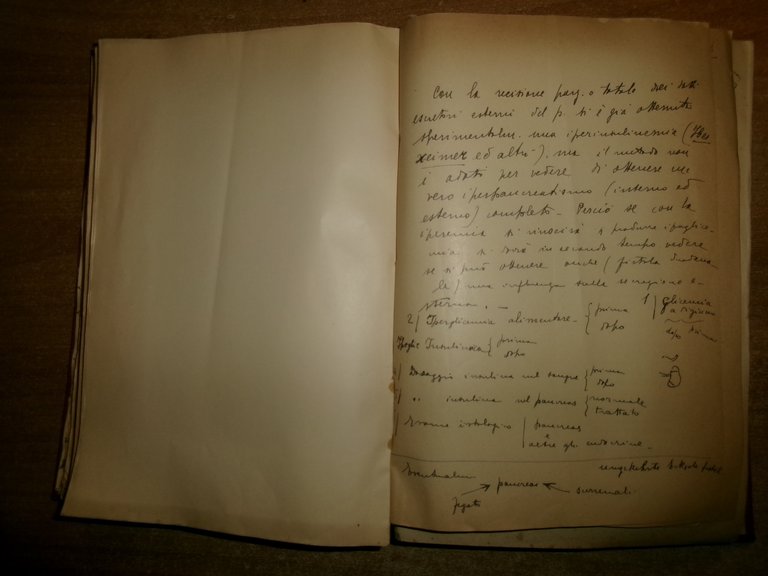 Con la recisione parz. o totale dei dotti
escretori esterni del p. si è già ottenuta
sperimentalm. una iperinsulinemia (Her
xeimer ed altri), ma il metodo non
è adatto per vedere di ottenere un
vero iperpancreatismo (interno ed
esterno) completo. Perciò se con la
iperemia si riuscirà a produrre ipoglice-
mia, si dovrà in secondo tempo vedere
se si può ottenere anche (fistola duodena
le) una influenza sulla secrezione e-
sterna. —
1) Glicemia
a digiuno
prima
dopo
2) Iperglicemia alimentare { prima
dopo
Insulinica { prima
dopo
Dosaggio insulina nel sangue { prima
dopo
" insulina nel pancreas { normale
trattato
Esame istologico pancreas
e
altre gh. endocrine.
Eventualm
pancreas
fegato
surrenali